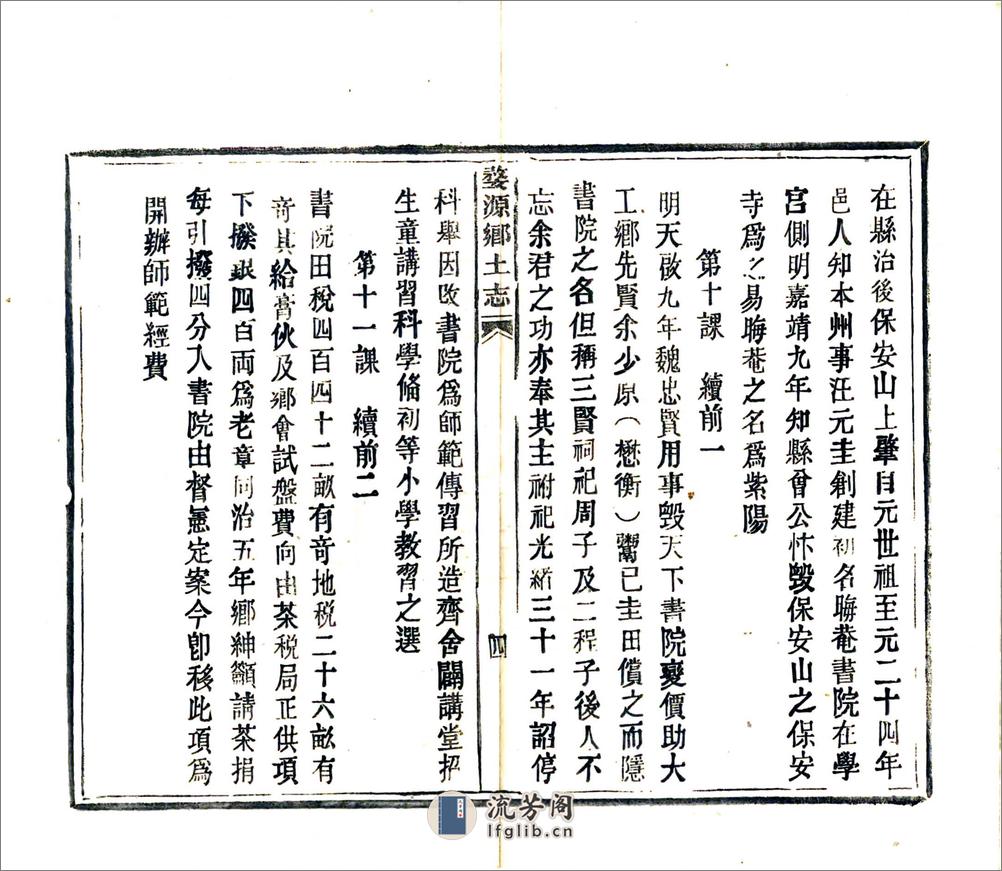 在縣治後保安山上肇自元世祖至元二十四年
邑人知本州事汪元圭創建初名晦菴書院在學
宮側明嘉靖九年知縣曾公忭毀保安山之保安
寺爲之易晦菴之名爲紫陽
第十課 續前一
明天啟九年魏忠賢用事毀天下書院變價助大
工鄉先賢余少原(懋衡)鬻已圭田償之而隱
書院之名但稱三賢祠祀周子及二程子後人不
忘余君之功亦奉其主祔祀光緒三十一年詔停
婺源鄉土志
四
科舉因改書院爲師範傳習所造齊舍闢講堂招
生童講習科學備初等小學教習之選
第十一課 續前二
書院田稅四百四十二畝有奇地稅二十六畝有
奇其給膏伙及鄉會試盤費向由茶稅局正供項
下撥銀四百両爲老章同治五年鄉紳籲請茶捐
每引撥四分入書院由督憲定案今卽移此項爲
開辦師範經費
流芳阁
lfglib.cn